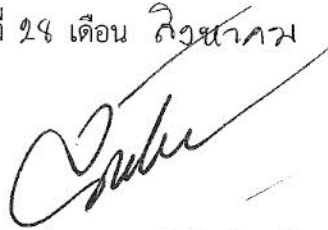 ที่ 28 เดือน สิงหาคม